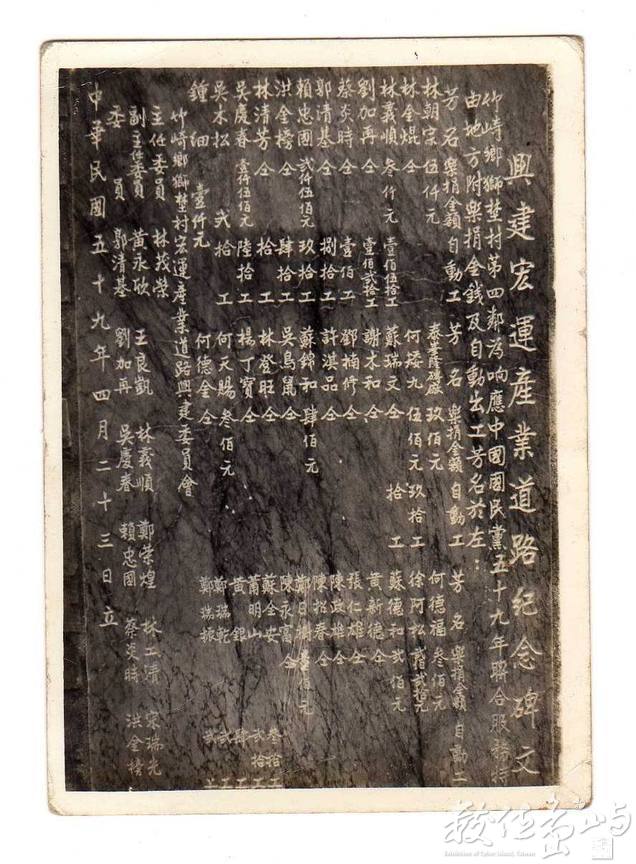 興建宏運產業道路紀念碑文
竹崎鄉獅埜村第四鄰為响應中國國民黨五十九年聯合服務特
由地方附樂捐金錢及自動出工芳名於左：
芳名 樂捐金額 自動工 芳名 樂捐金額 自動工 芳名 樂捐金額 自動工
林朝宗 伍仟元 何德福 叁佰元
林金焜 仝 壹佰伍拾工 何矮九 伍佰元 玖拾工 徐阿松
林義順 叁仟元 蘇瑞文 仝 拾工 蘇德和 貳佰元
劉加再 仝 壹佰貳拾工 謝木和 仝 黃新德 仝
蔡炎時 仝 壹佰工 鄧楠修 仝 張仁雄 仝
郭清基 仝 捌拾工 許淇品 仝 陳政雄 仝
賴忠國 貳仟伍佰元 玖拾工 蘇錦和 肆佰元 陳松春 仝
洪金榜 仝 肆拾工 吳鳥鼠 仝
林清芳 仝 拾工 林登旺 仝 陳永富 仝
吳慶春 壹仟伍佰元 陸拾工 楊丁寶 仝 蘇全安 叁拾工
吳木松 貳拾工 何天賜 叁佰元 蕭明山 貳拾工
鍾細 壹仟元 何德金 仝 黃銀 肆工
鄭瑞乾 貳工
鄭瑞振 貳工
竹崎鄉獅埜村宏運產業道路興建委員會
主任委員 林茂榮
副主任委員 黃永欣 王良凱 林義順 鄭榮煌 林工清 宋瑞光
委員 郭清基 劉加再 吳慶春 賴忠國 蔡炎時 洪金榜
中華民國五十九年四月二十三日立
數位島嶼
Exhibition of Cyber Island, Taiwan